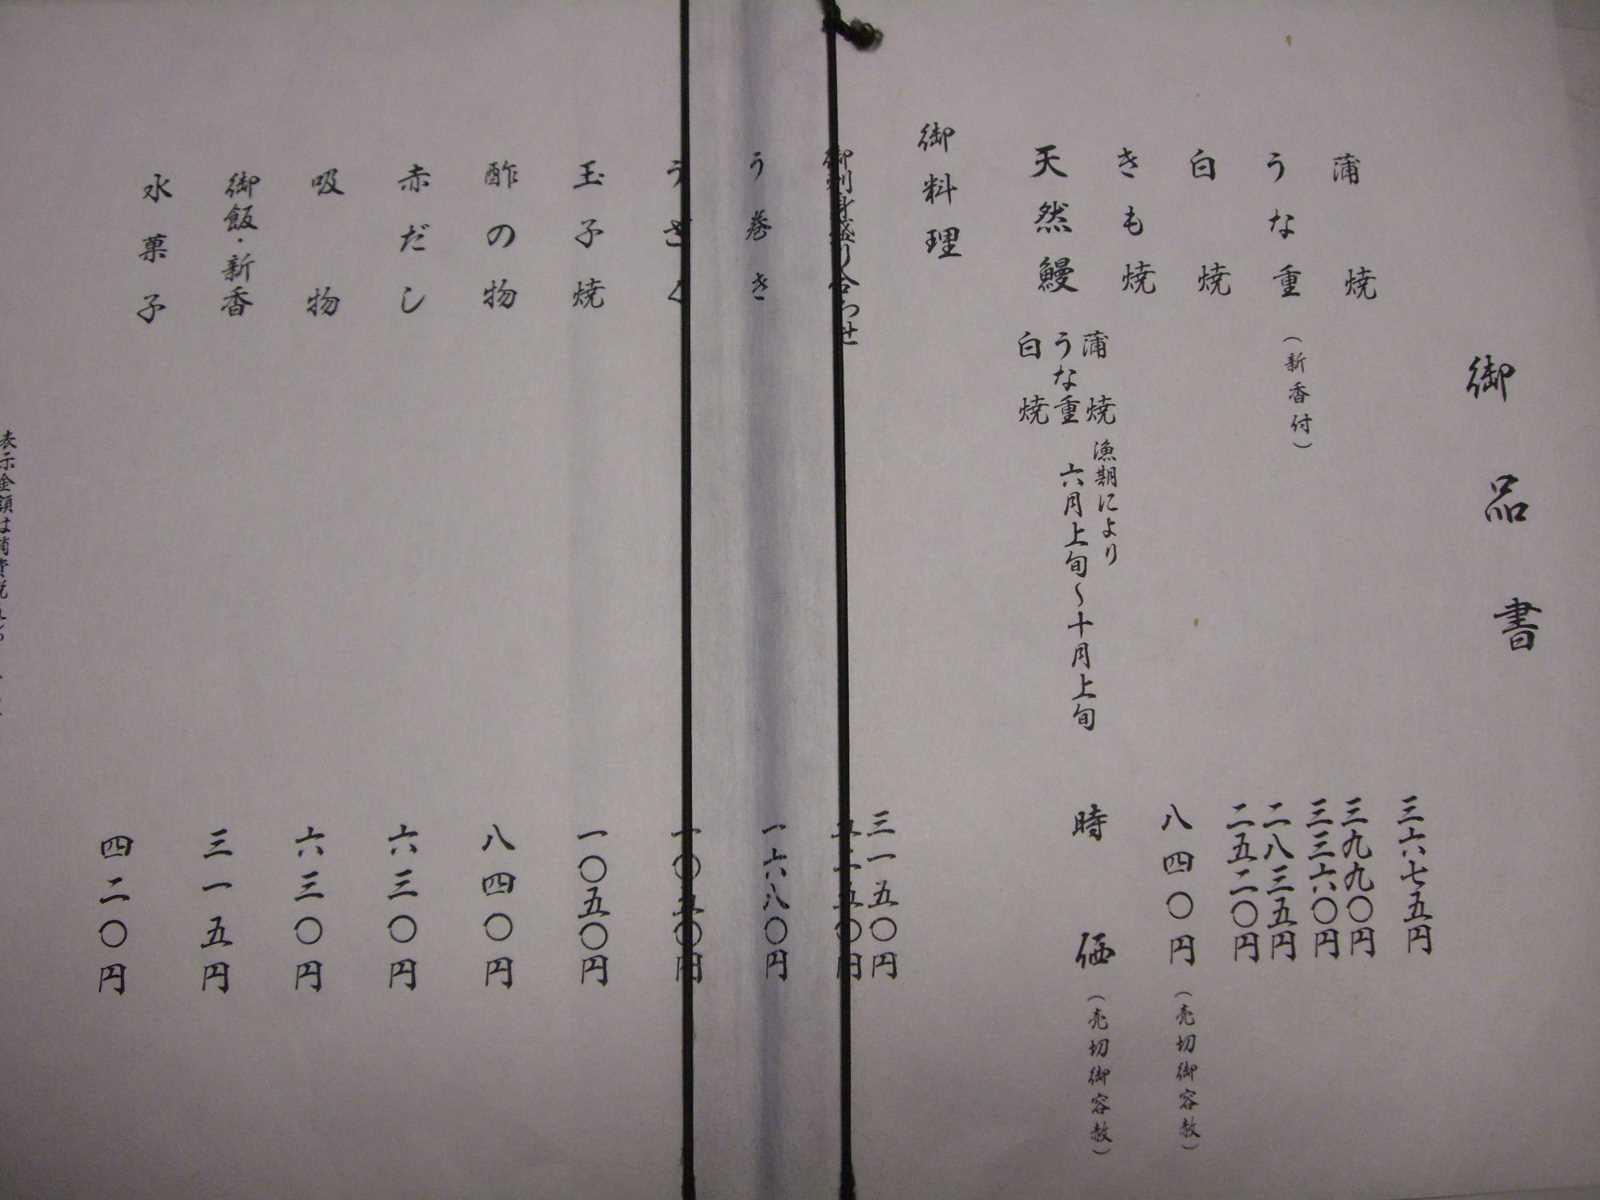 御品書
蒲焼 三六七五円
うな重（新香付） 三九九〇円
三三六〇円
二八三五円
白焼 二五二〇円
きも焼 八四〇円（売切御容赦）
天然鰻 蒲焼 うな重 白焼
漁期により
六月上旬～十月上旬
時価（売切御容赦）
御料理
三一五〇円
御刺身盛り合わせ 五二五〇円
う巻き 一六八〇円
うざく 一〇五〇円
玉子焼 一〇五〇円
酢の物 八四〇円
赤だし 六三〇円
吸物 六三〇円
御飯・新香 三一五円
水菓子 四二〇円
表示金額は消費税